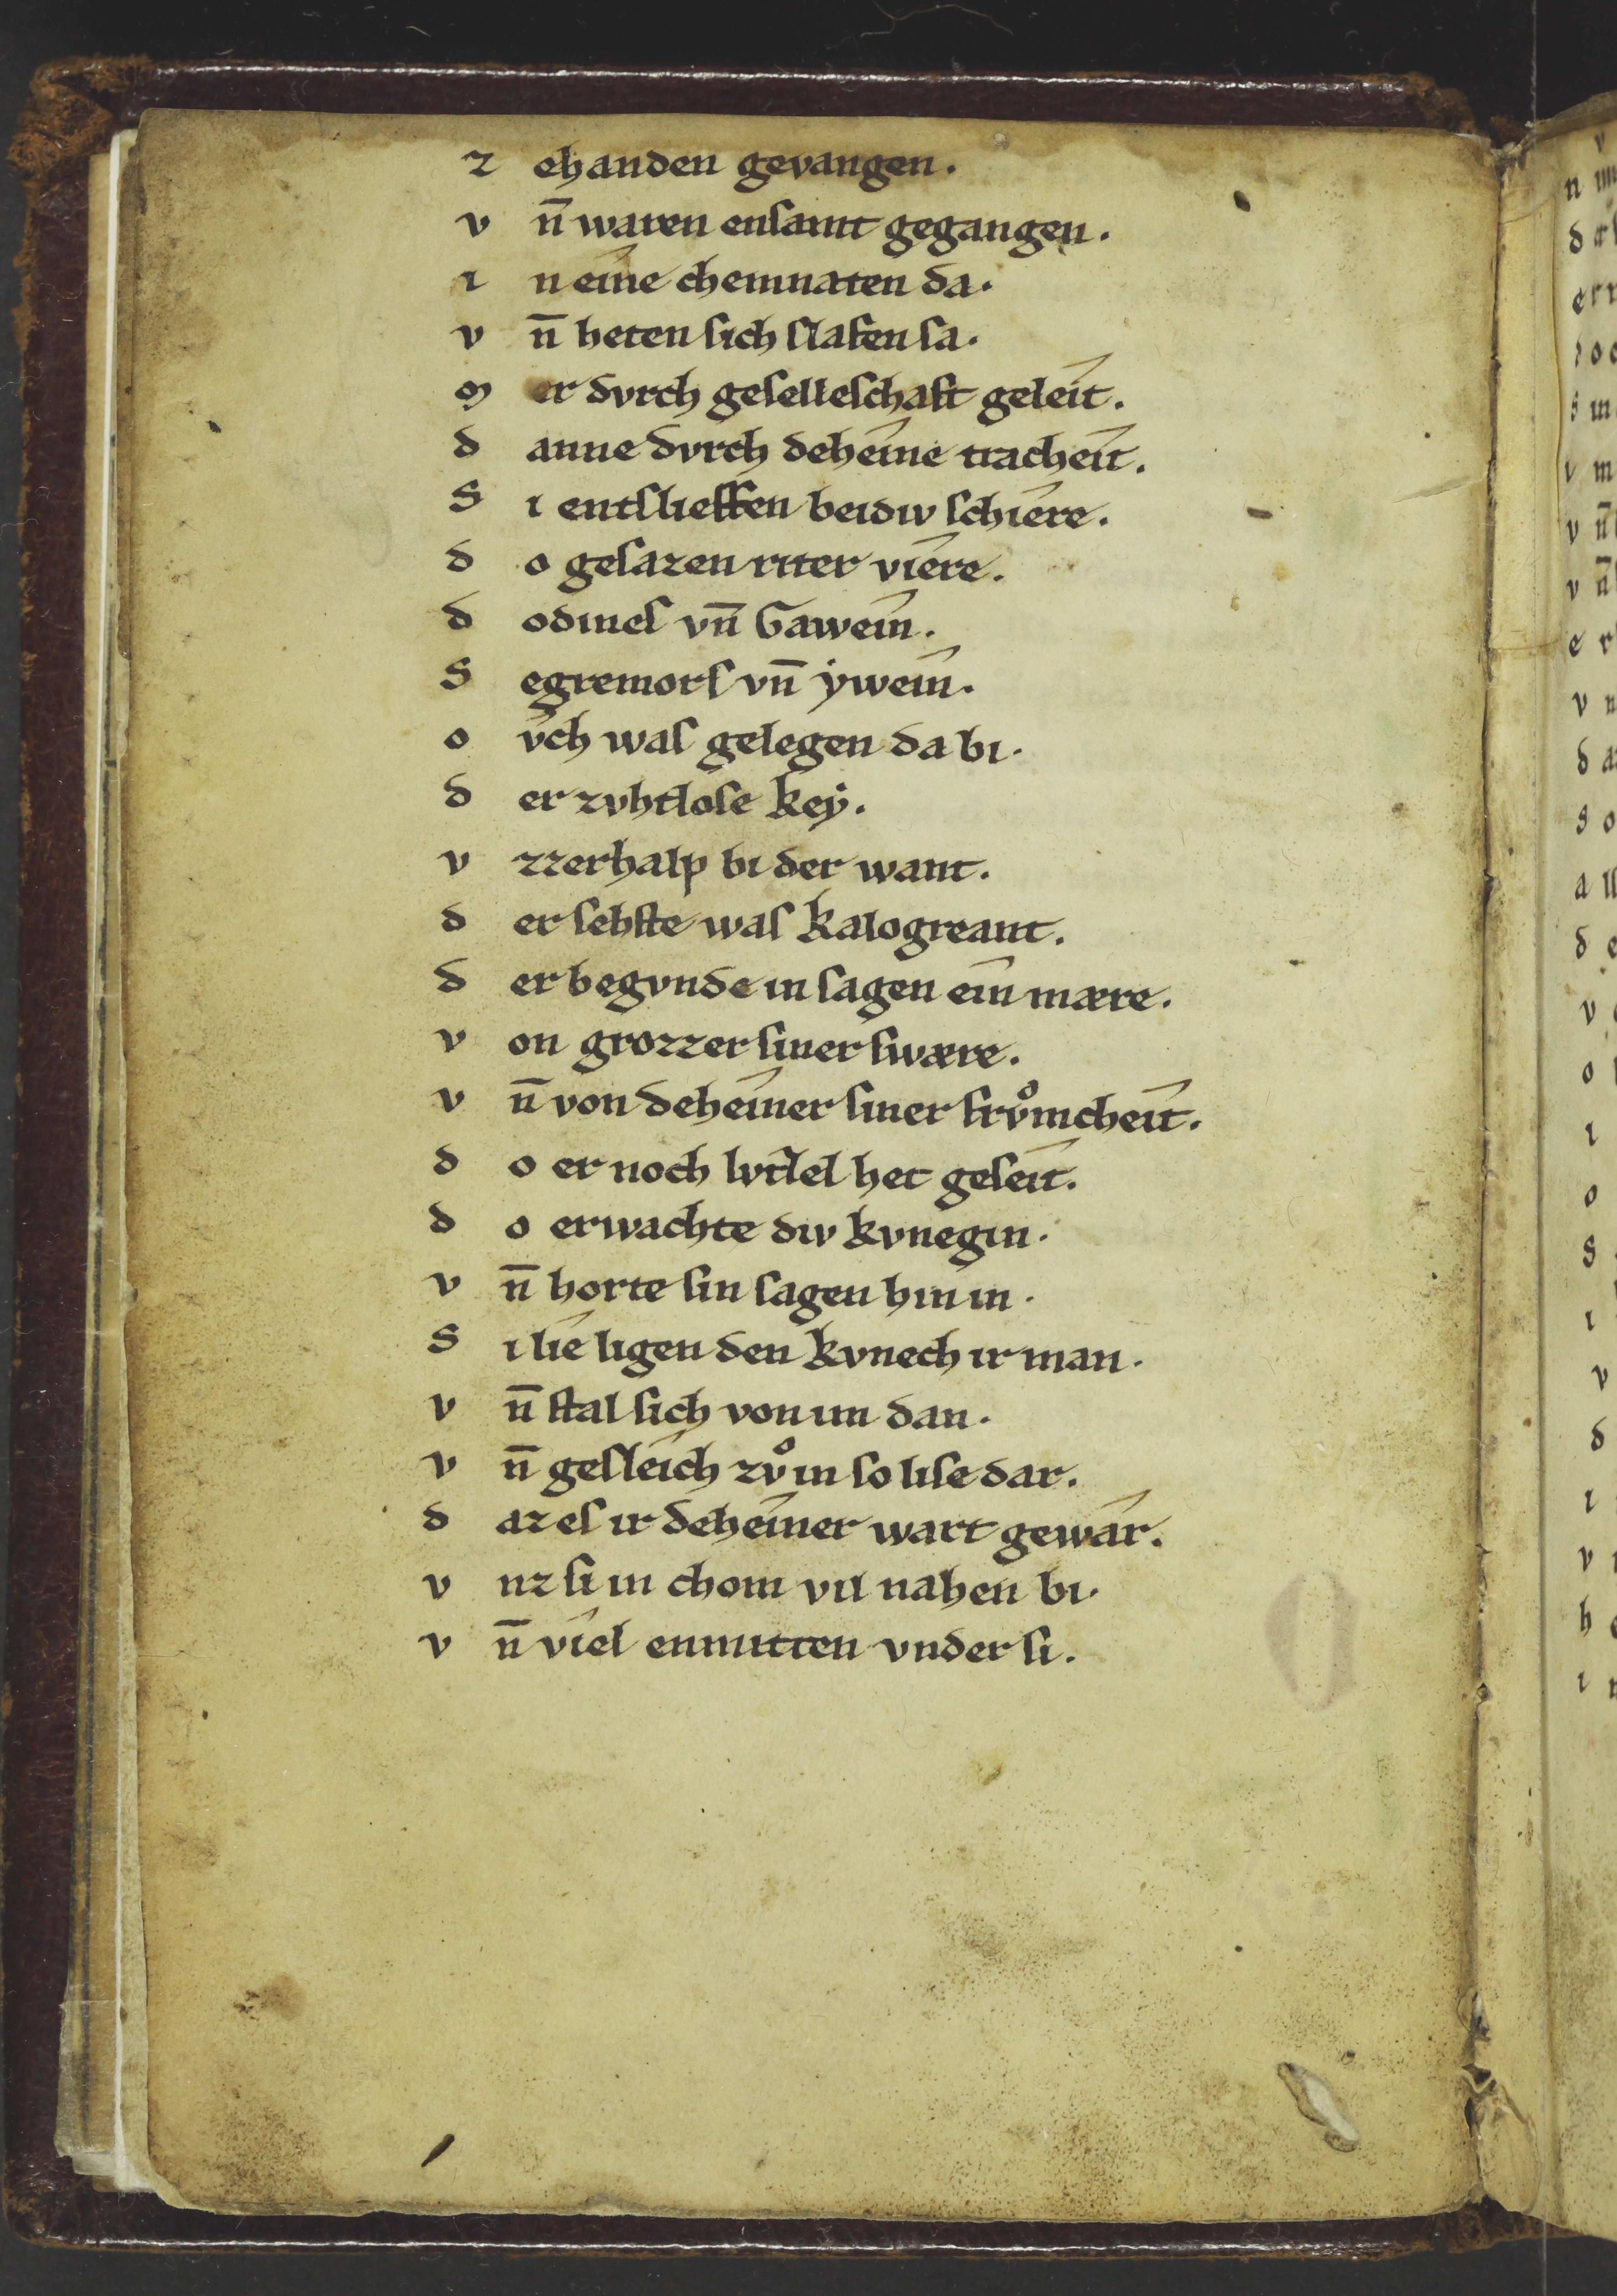 z ehanden gevangen.
v n̄ waren ensamt gegangen.
i n eine chemnaten da.
v n̄ heten sich slafen sa.
m er dvrch geselleschaft geleît.
d anne dvrch deheîne tracheît.
S i entslieffen beidiv schîere.
d o gesazen riter vîere.
d odines vn̄ Gaweîn.
S egremors vn̄ ẏweîn.
o v̂ch was gelegen da bi.
d er zvhtlôse keẏ.
v zzerhalp bi der want.
d er sehste was kalogreant.
d er begvnde in sagen eîn mære.
v on grozzer siner swære.
v n̄ von deheîner siner frvͦmcheît.
d o er noch lvtzel het geseît.
d o erwachte div kvnegin.
v n̄ horte sin sagen hin in.
S i lîe ligen den kvnech ir man.
v n̄ stal sich von im dan.
v n̄ gesleîch zvͦ in so lise dar.
d az es ir deheîner wart gewâr.
v nz si in chom vil nahen bi.
v n̄ vîel enmitten vnder si.